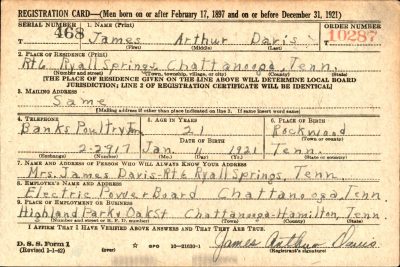 REGISTRATION CARD—(Men born on or after February 17, 1897 and on or before December 31, 1921)
SERIAL NUMBER 1. Name (Print) ORDER NUMBER
T 468 James Arthur Davis 10287
(First) (Middle) (Last)
2. PLACE OF RESIDENCE (Print)
Rt6 Ryall Springs Chattanooga, Tenn.
(Number and street) (Town, township, village, or city) (County) (State)
[THE PLACE OF RESIDENCE GIVEN ON THE LINE ABOVE WILL DETERMINE LOCAL BOARD
JURISDICTION; LINE 2 OF REGISTRATION CERTIFICATE WILL BE IDENTICAL]
3. MAILING ADDRESS
Same
[Mailing address if other than place indicated on line 2. If same insert word same]
4. TELEPHONE 5. AGE IN YEARS 6. PLACE OF BIRTH
Banks Poultry 21 Rockwood
DATE OF BIRTH (Town or county)
2-2917 Jan 11 1921 Tenn.
(Exchange) (Number) (Mo.) (Day) (Yr.) (State or country)
7. NAME AND ADDRESS OF PERSON WHO WILL ALWAYS KNOW YOUR ADDRESS
Mrs. James Davis-Rt6 Ryall Springs, Tenn
8. EMPLOYER'S NAME AND ADDRESS
Electric Power Board Chattanooga, Tenn
9. PLACE OF EMPLOYMENT OR BUSINESS
Highland Park Oak St Chattanooga-Hamilton, Tenn
(Number and street or R. F. D. number) (Town) (County) (State)
I AFFIRM THAT I HAVE VERIFIED ABOVE ANSWERS AND THAT THEY ARE TRUE.
D. S. S. Form 1
(Revised 1-1-42) (over) GPO 16-21630-1 James Arthur Davis
(Registrant's signature)